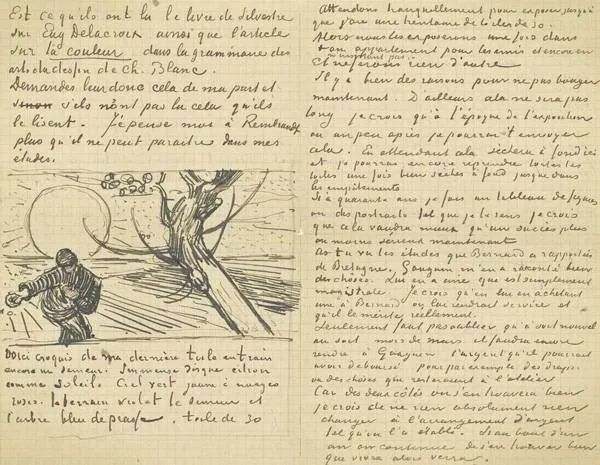 Est ce qu'ils ont lu le livre de Silvestre
sur Eug Delacroix ainsi que l'article
sur la couleur dans la grammaire des
arts du dessin de Ch. Blanc.
Demandes leur donc cela de ma part et
sinon s'ils n'ont pas lu cela qu'ils
le lisent. J'pense moi à Rembrandt
plus qu'il ne peut paraitre dans mes
études.
Voici croquis de ma dernière toile en train
encore un semeur. Immense disque citron
comme soleil. Ciel vert jaune à nuages
roses. le terrain violet le semeur et
l'arbre bleu de prusse. toile de 30
Attendons tranquillement pour exposer jusqu'à
que j'aie une trentaine de toiles de 30.
Alors nous les exposerons une fois dans
ton appartement pour les amis et encore en
n'insistant pas.
Et ne faisons rien d'autre
Il y a bien des raisons pour ne pas bouger
maintenant. D'ailleurs cela ne sera pas
long je crois qu'à l'époque de l'exposition
ou un peu après je pourrai t'envoyer
cela. En attendant cela sèchera à fond ici
et je pourrai encore reprendre toutes les
toiles une fois bien sèches à fond jusque dans
les empâtements
Si à quarante ans je fais un tableau de figures
ou des portraits tel que je le sens je crois
que cela vaudra mieux qu'un succès plus
ou moins sérieux maintenant
As tu vu les études que Bernard a rapportés
de Bretagne, Gauguin m'en a raconté bien
des choses. Lui en a une qui est simplement
magistrale. Je crois qu'en lui en achetant
une à Bernard on lui rendrait service et
qu'il le mérite réellement.
Seulement faut pas oublier qu'à sout nouvel
au soit mois de mars il faudra encore
rendre à Gauguin l'argent qu'il pourrait
avoir déboursé pour par exemple des draps
ou des choses qui resteraient à l'atelier
Car des deux côtés on s'en trouvera bien
je crois de ne rien absolument rien
changer à l'arrangement d'argent
tel qu'on l'a établi. Si au bout d'un
an on continue de s'en trouver bien
que vivra alors verra.